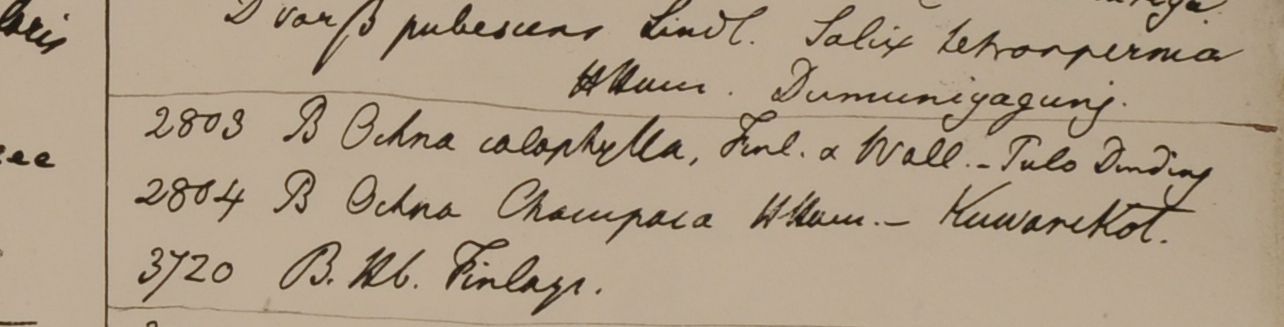 D var β pubescens Lindl. Salix tetrasperma
HHam. Dumuniyagunj.
2803 B Ochna calophylla, Finl. & Wall. - Pulo Dinding
2804 B Ochna Champaca HHam. - Kuwarekot.
3720 B. Hb. Finlays.